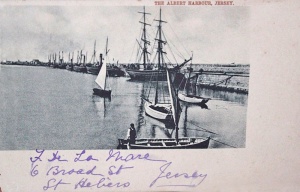 THE ALBERT HARBOUR, JERSEY.
F. De La Mare
6 Broad St
St Heliers Jersey